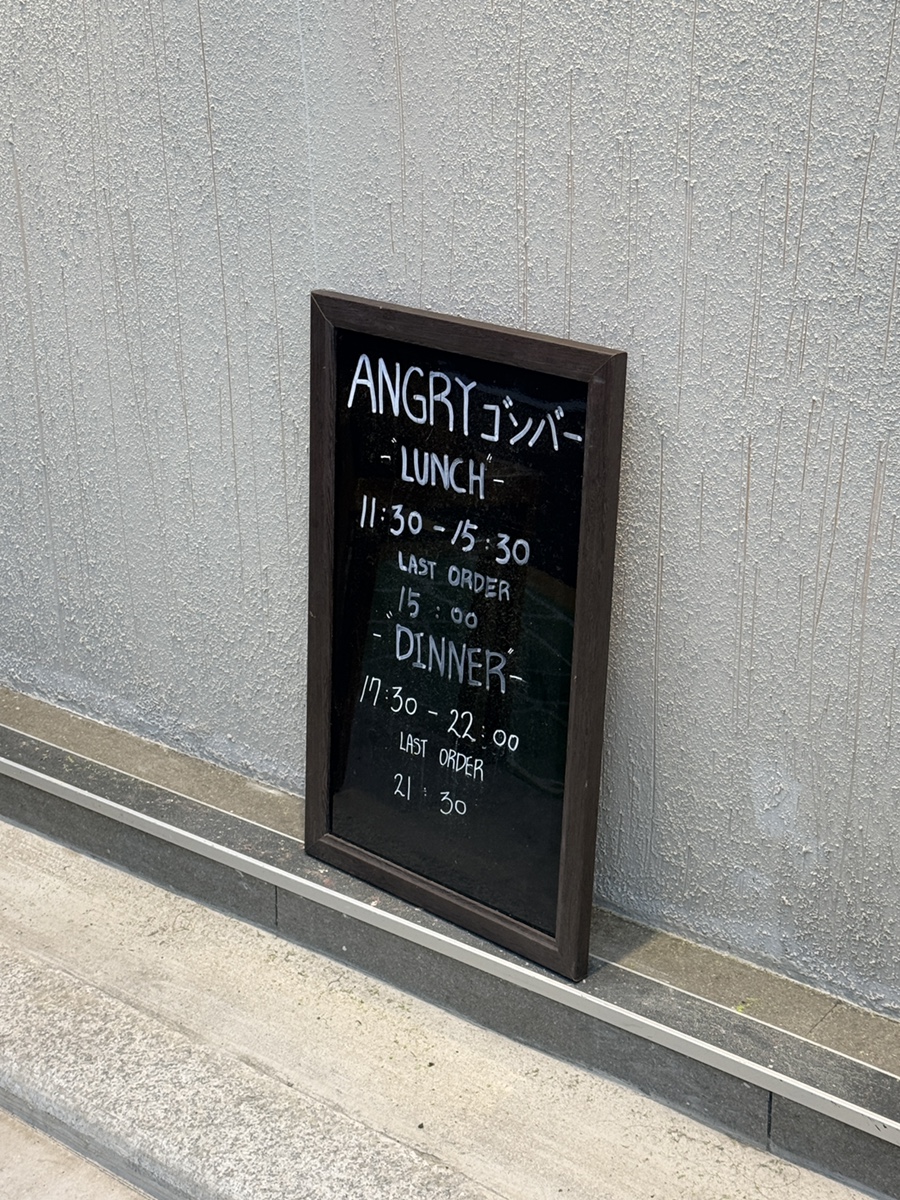 ANGRY ゴンバー
-"LUNCH"-
11:30 - 15:30
LAST ORDER
15:00
-"DINNER"-
17:30 - 22:00
LAST ORDER
21:30